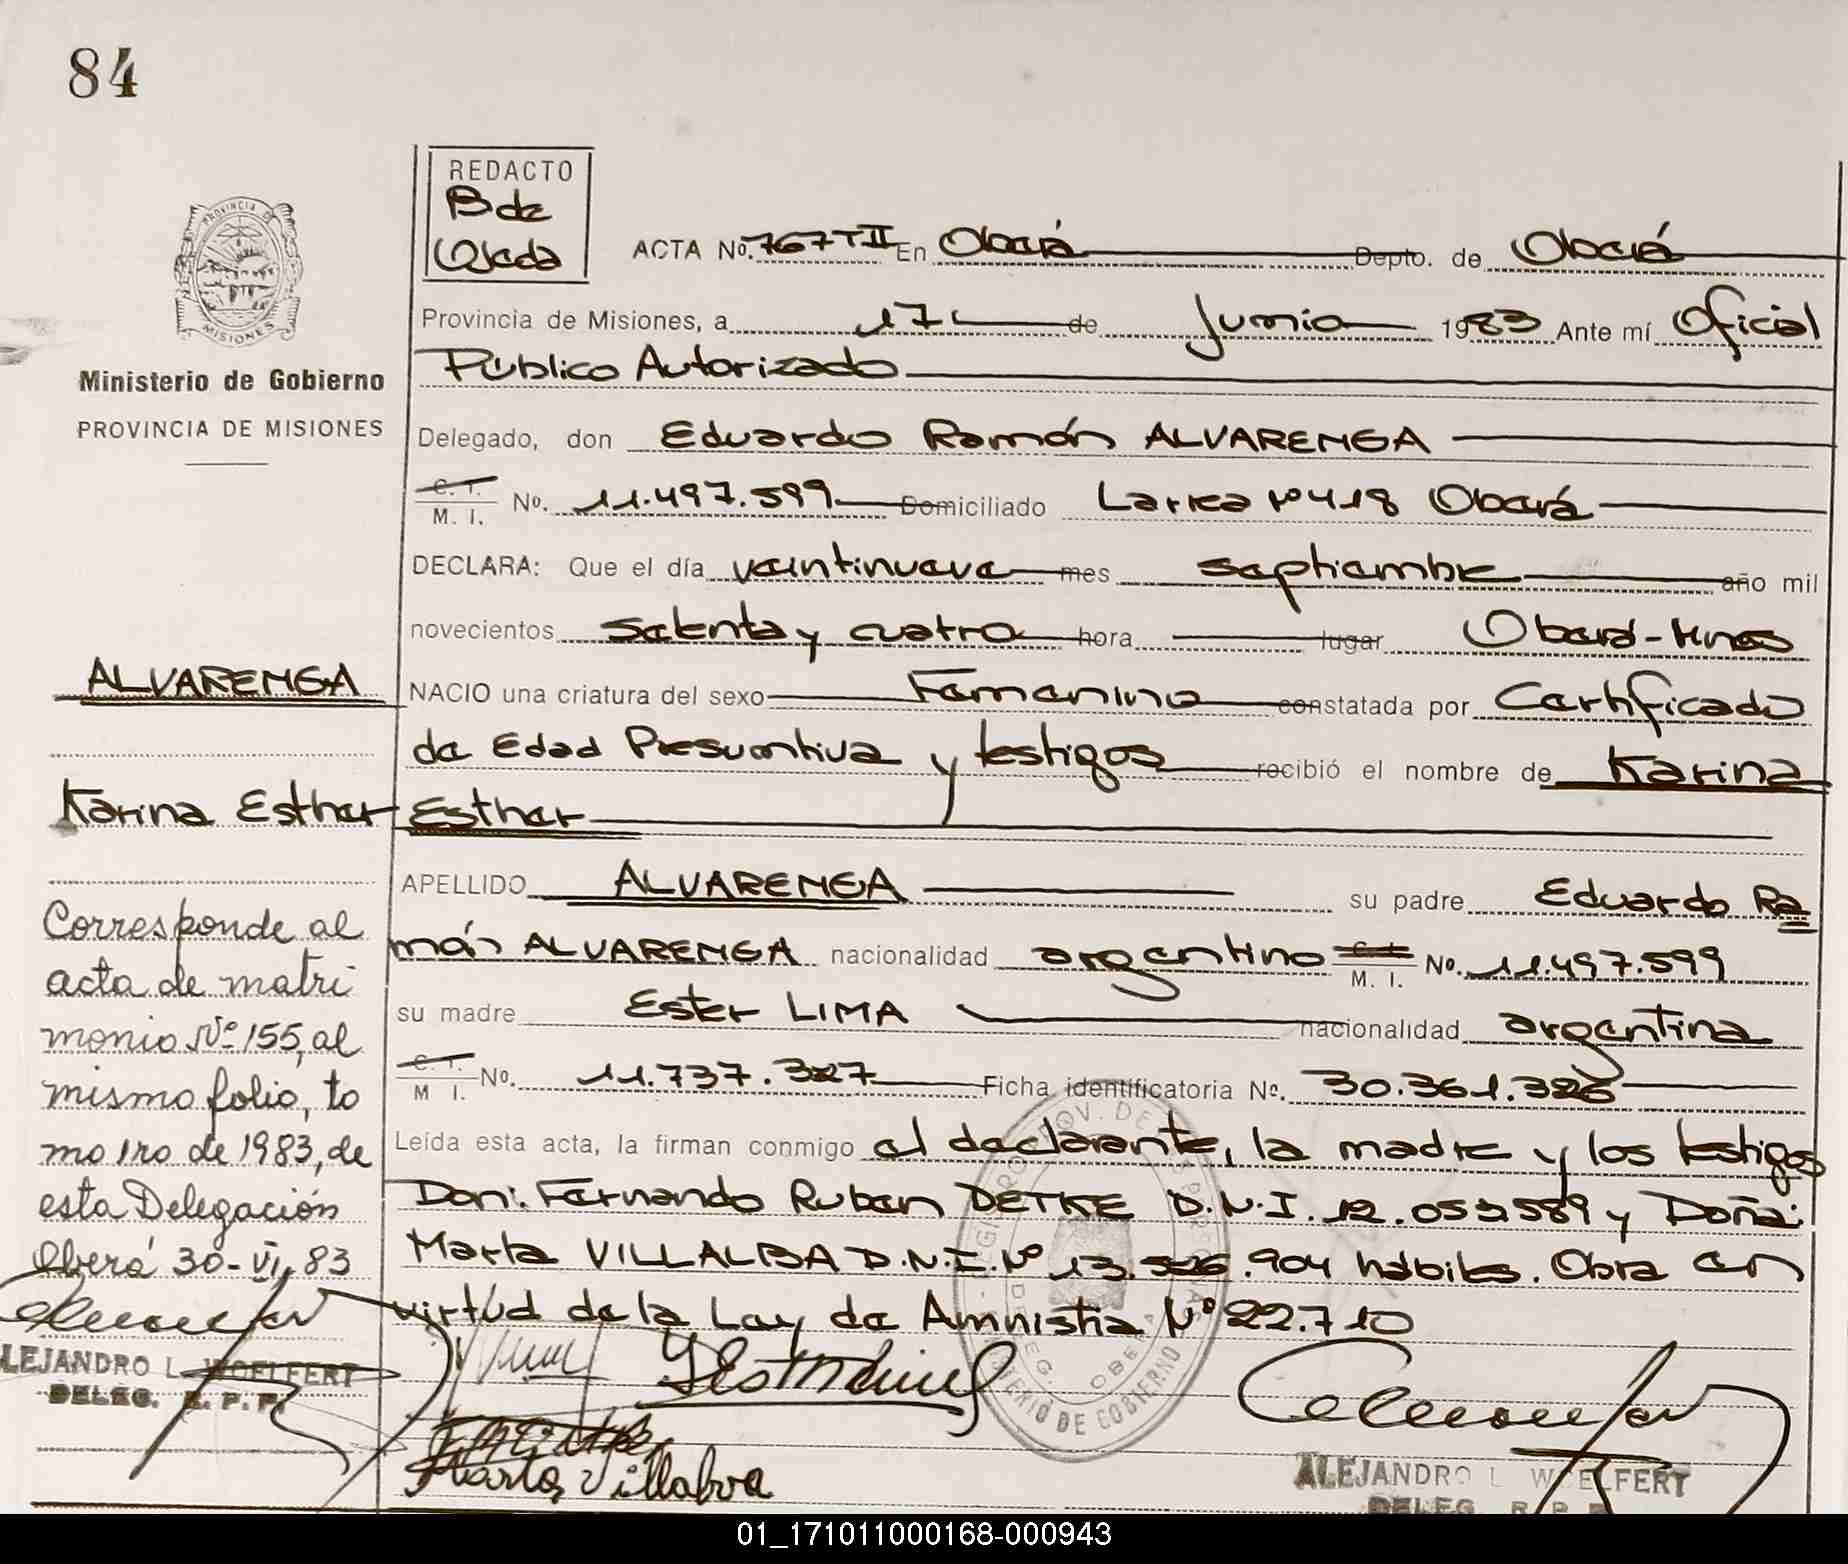 84
REDACTO
Bde
Ojeda
PROVINCIA DE
MISIONES
Ministerio de Gobierno
PROVINCIA DE MISIONES
ACTA No. 767 T II En Oberá Depto. de Oberá
Provincia de Misiones, a 17 de Junio 1983 Ante mí Oficial
Público Autorizado
Delegado, don Eduardo Ramón ALVARENGA
C. I. M. I. No. 11.497.599 Domiciliado Larrea Nº 418 Oberá
DECLARA: Que el día veintinueve mes septiembre año mil
novecientos setenta y cuatro hora lugar Oberá-Mnes
NACIO una criatura del sexo Femenino constatada por Certificado
de Edad Presuntiva y testigos recibió el nombre de Karina
Esther
APELLIDO ALVARENGA su padre Eduardo Ra
món ALVARENGA nacionalidad argentino C. I. M. I. No. 11.497.599
su madre Ester LIMA nacionalidad argentina
C. I. M. I. No. 11.737.327 Ficha identificatoria No. 30.361.326
Leída esta acta, la firman conmigo el declarante, la madre y los testigos
Don: Fernando Ruben DETKE D.N.I. 12.052589 y Doña:
Marta VILLALBA D.N.I. Nº 13.526.904 habiles. Obra en
virtud de la Ley de Amnistia Nº 22.710
Marta Villalva
ALEJANDRO L WOELFERT
DELEG. R. P. P.
ALVARENGA
Karina Esther
Corresponde al
acta de matri
monio Nº 155, al
mismo folio, to
mo 1ro de 1983, de
esta Delegación
Oberá 30-VI-83
ALEJANDRO L WOELFERT
DELEG. R. P. P.
MINISTERIO DE GOBIERNO
01_171011000168-000943